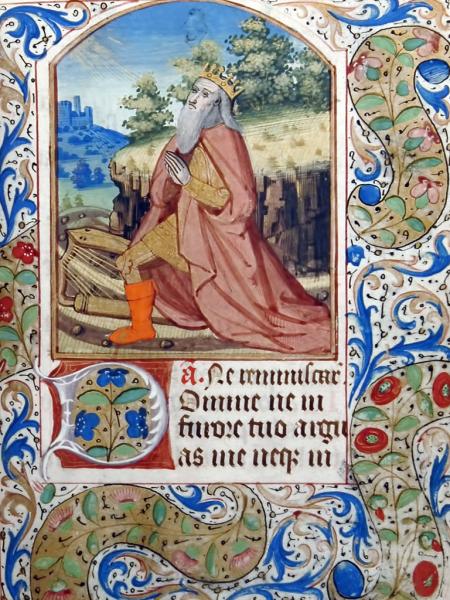 A. Ne reminiscar̄.
Domine ne in
furore tuo argu
as me neqꝫ in